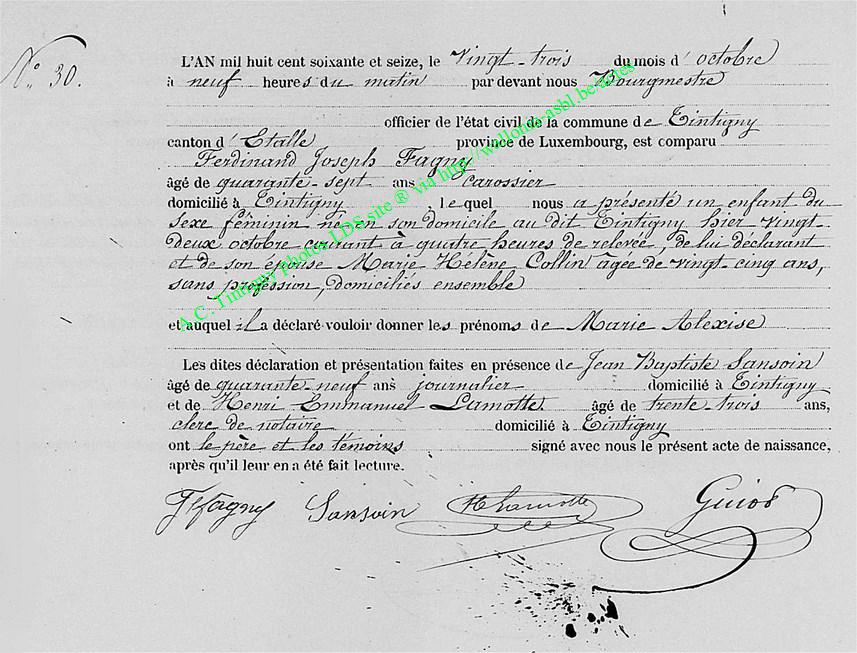 N° 30.
L'AN mil huit cent soixante et seize, le Vingt-trois du mois d'octobre
à neuf heures du matin par devant nous Bourgmestre
officier de l'état civil de la commune de Tintigny
canton d'Etalle province de Luxembourg, est comparu
Ferdinand Joseph Fagny
âgé de quarante-sept ans carossier
domicilié à Tintigny, lequel nous a présenté un enfant du
sexe féminin né en son domicile au dit Tintigny hier vingt-
deux octobre courant à quatre heures de relevée, de lui déclarant
et de son épouse Marie Hélène Collin âgée de vingt-cinq ans,
sans profession, domiciliés ensemble
et auquel il a déclaré vouloir donner les prénoms de Marie Alexise
Les dites déclaration et présentation faites en présence de Jean Baptiste Sansoin
âgé de quarante neuf ans journalier domicilié à Tintigny
et de Henri Emmanuel Lamotte âgé de trente-trois ans,
clerc de notaire domicilié à Tintigny
ont le père et les témoins signé avec nous le présent acte de naissance,
après qu'il leur en a été fait lecture.
Fagny Sansoin HLamotte Guiot
A.C. Tintigny photos LDS site ® via http://wallonia-asbl.be/actes